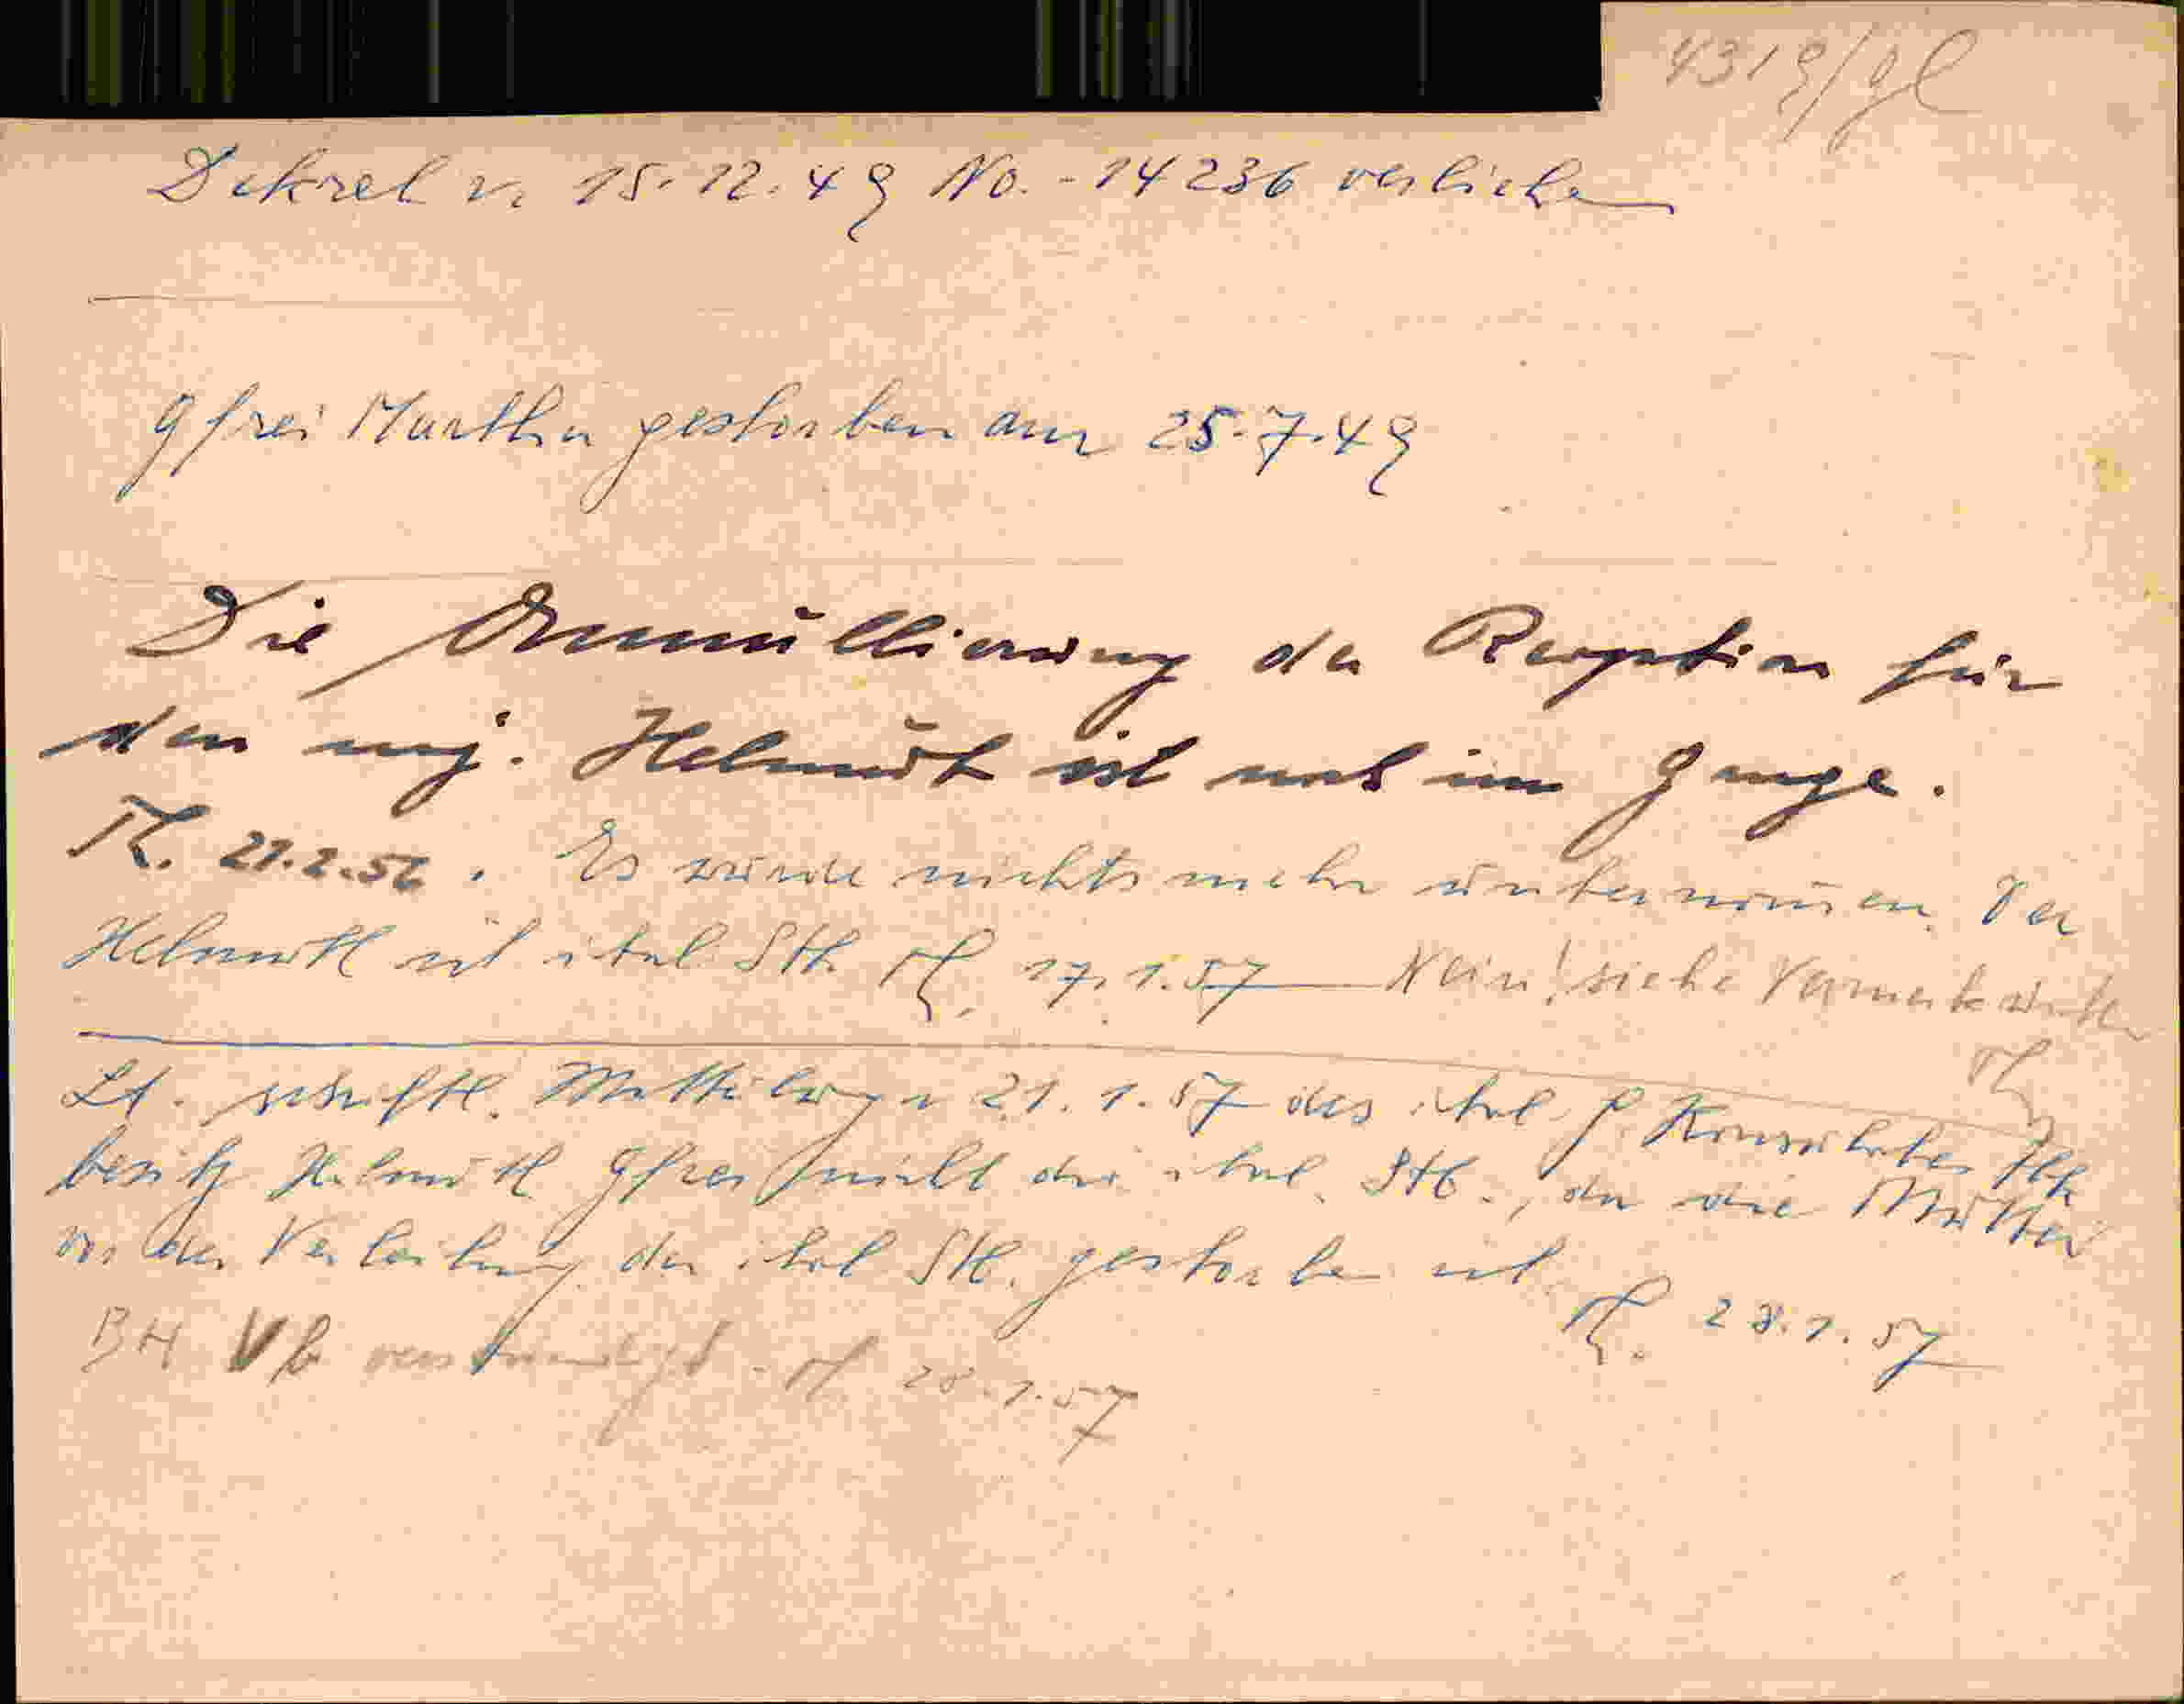 4319/gl
Dekret v. 15.12.49 No. - 14236 verliehen
Gfrei Martha gestorben am 25.7.49
Die Annullierung der Reoption für
den mj. Helmuth ist noch im Gange.
21.2.56. Es wurde nichts mehr unternommen. Der
Helmuth ist ital. Stb. 17.1.57 Nein! siehe Vermerk unten
Lt. schriftl. Mitteilung v. 21.1.57 des ital. Konsulates
besitzt Helmuth Gfrei nicht die ital. Stb., da die Mutter
vor der Verleihung der ital. Stb. gestorben ist.
28.1.57
BH verständigt. 28.1.57